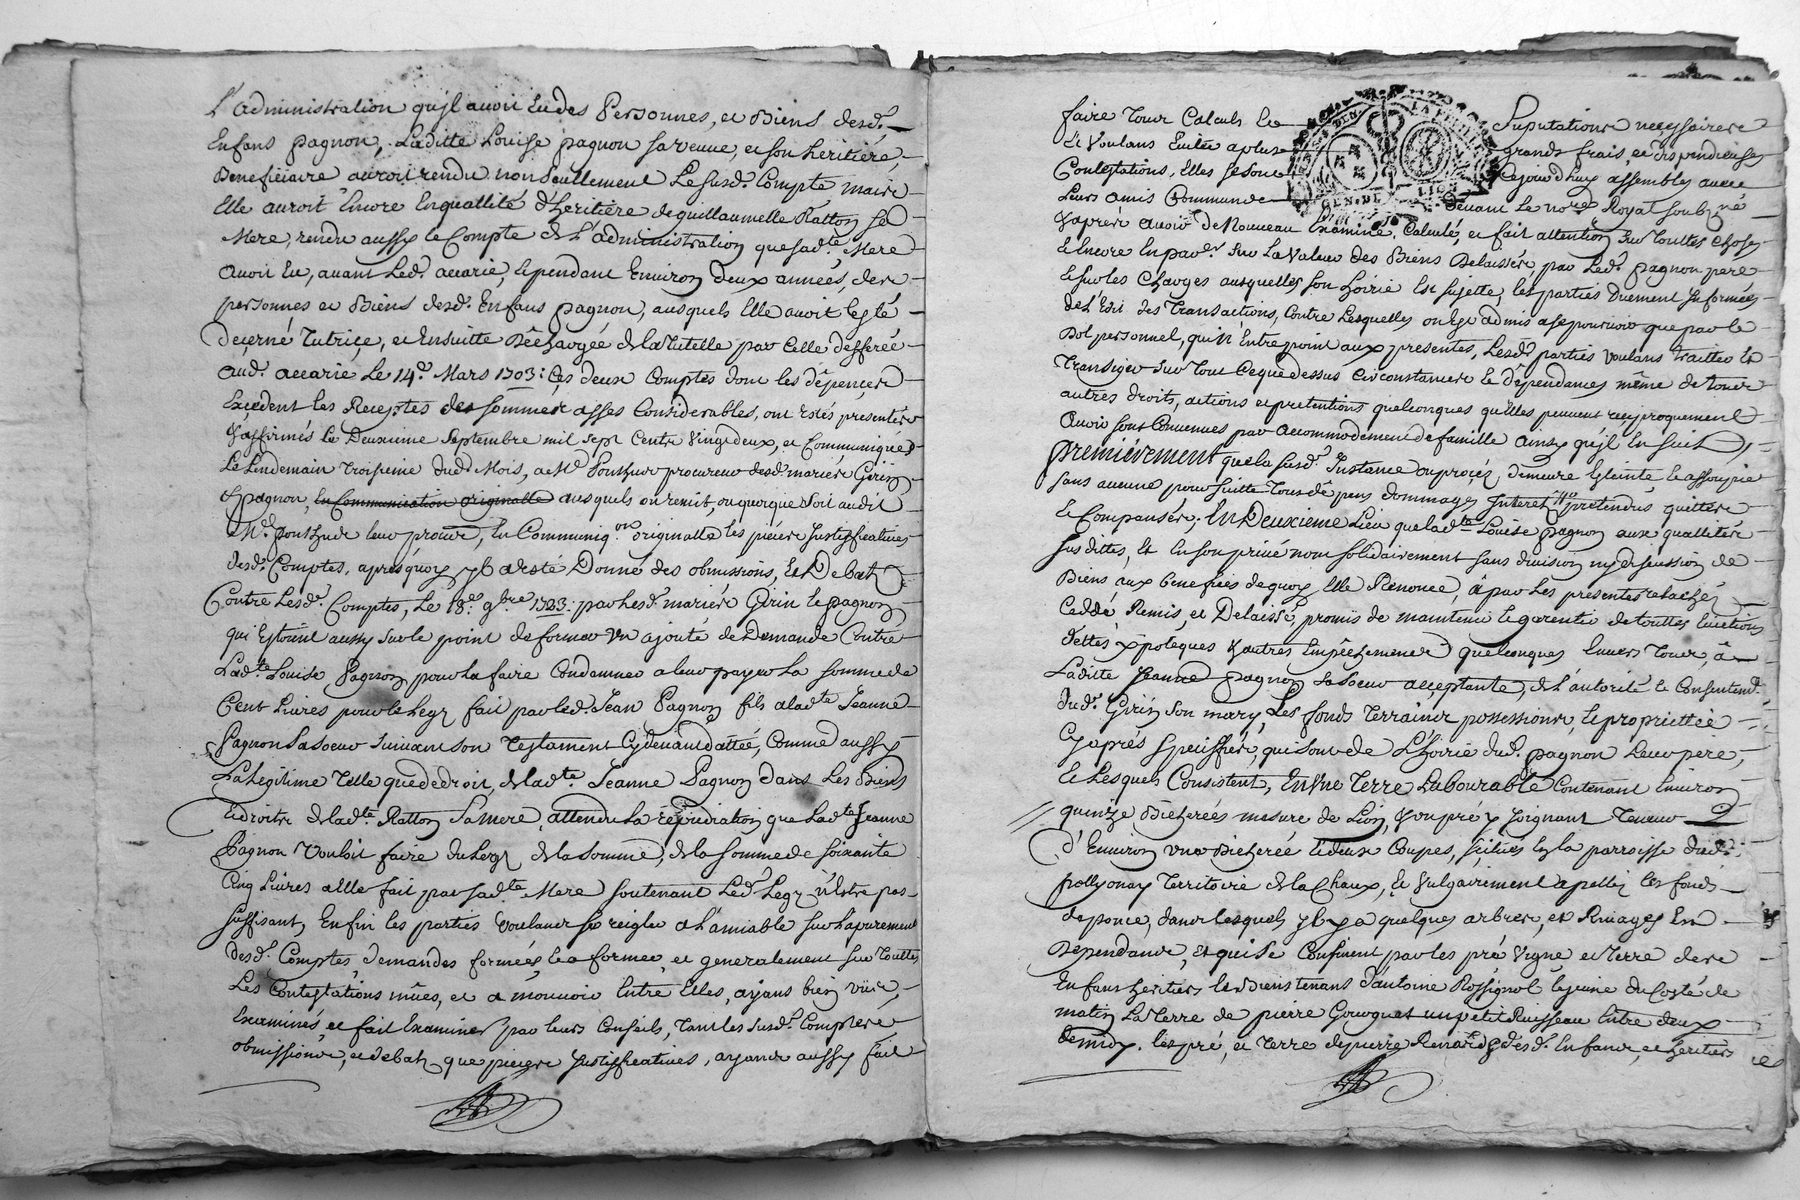 L'administration qu'jl avoit Eu des Personnes, et Biens desd.
Enfans pagnon, Laditte Louise pagnon sa veuve, et son heritiere,
Beneficiaire auroit rendu non seullement Le susd. Compte, mais
Elle auroit Encore Enquallité d'heritiere de guillaumette Ratton sa
Mere, rendu aussy le Compte de L'administration que sad.te Mere
avoit Eu, avant Led. accarie, et pendant Environ deux années, des
personnes et Biens desd. Enfans pagnon, ausquels Elle avoit Esté
decerné Tutrice, et Ensuitte Déchargée de la Tutelle par Celle defferée
aud. accarie Le 14.e Mars 1703: Ces deux Comptes dont les dépences
Excedent les Receptes des sommes asses Considerables, ont Estés présentés
& affirmés Le Deuxieme Septembre mil sept Cents vingt deux, et Communiqués
Le Lendemain Troisieme dud. Mois, a M.e Ponthus procureur desd. mariés Girin
& pagnon, en Communication originalle ausquels on remit, ou quoique soit audit
M.e ponthus leur procur, En Communiq.on originalle les pieces Justifficatives
desd. Comptes, aprés quoy yl a esté Donné des obmissions, Et Debats
Contre Lesd. Comptes, Le 18.e 9bre 1723: par Lesd. mariés Girin et pagnon
qui Estoint aussy sur le point de former un ajouté de Demande Contre
Lad.te Louise Pagnon pour La faire Condamner a leur payer La somme de
Cent Livres pour le Legz fait par led. Jean Pagnon fils a lad.te Jeanne
Pagnon Sa Soeur suivant son Testament Cydevant datté, Comme aussy
La Legitime Telle que de droit, de lad.te Jeanne Pagnon dans Les Biens
Et droits de lad.te Ratton Sa Mere, attendu La répudiation que Lad.te Jeanne
Pagnon Vouloit faire du Legz de la somme, de la somme de soixante
Cinq Livres a Elle fait par sad.te Mere soutenant Led. Legz n'Estre pas
suffisant, Enfin les parties voulants se reigler a L'amiable sur L'apurement
desd. Comptes, demandes formées, et a former, et generalement sur Touttes
Les Contestations mües, et a mouvoir Entre Elles, ayans bien vüe,
Examinés, et fait Examiner par leurs Conseils, Tant les susd. Comptes
obmissions, et debats, que pieces Justifficatives, ayants aussy fait
faire Tous Calculs Et Suputations necessaires
Et Voulans Eviter a plus grands frais, et dispendieuses
Contestations, Elles se sont Cejourd'huy assemblés avec
Leurs amis Communs devant Le no.re Royal soubz.né
& aprés avoir de Nouveau Examiné, Calculé, et fait attention sur Touttes Choses
Et Encore En par.er sur La valeur des Biens Delaissés, par Led. pagnon pere
Et sur les Charges ausquelles son hoirie Est sujette, les parties duement Informées
de L'Edit des Transactions, Contre Lesquelles on Est admis a se pourvoir que par le
Dol personnel, qui N'Entre point aux presentes, Lesd. parties voulans traitter Et
Transiger sur Tout Ceque dessus Circonstances Et dépendances même de tous
autres droits, actions et pretentions quelconques qu'Elles peuvent reciproquement
avoir sont Convenues par accommodement de famille ainsy qu'jl En suit,
premiérement que la susd. Instance ou procés, demeure Eteinte, et assoupie
sans aucune poursuitte Tous dépens dommages Interets pretendus quittes
Et Compansés. En Deuxieme Lieu que lad.te Louise pagnon aux quallités
susdittes, Et En son privé nom solidairement sans division ny discussion de
Biens aux benefices de quoy Elle Renonce, à par Les présentes relaché
Ceddé, Remis, et Delaissé, promis de maintenir Et garentir de touttes Evictions
dettes, ypoteques & autres Empêchements quelconques Envers Tous, à
Laditte Jeanne pagnon sa soeur acceptante, de L'autorité Et Consentem.t
dud. Girin son mary, Les fonds Terrains possessions, Et proprietté
Cy aprés Speciffiés, qui sont de L'hoirie dud. pagnon Leur pere,
Et Lesquels Consistent, En Une Terre Labourable Contenant Environ
quinze Bicherées mesure de Lion, & un pré y Joignant Teneur
d'Environ une Bicherée Et deux Coupes, scitués En la parroisse dud.
pollyonay Territoire de la Chaux, Et vulgairement apellés les fonds
de ponce, dans lesquels yl y a quelques arbres, et Rivages En
Dependants, Et qui se Confinent par les pré Vigne et Terre des
Enfans heritiers Et Bienstenans d'antoine Rossignol Le jeune du Costé de
matin La Terre de pierre Gourguet un petit Ruisseau Entre deux
de midy. Les pré, et Terre de pierre Renard & desd. Enfans, et heritiers